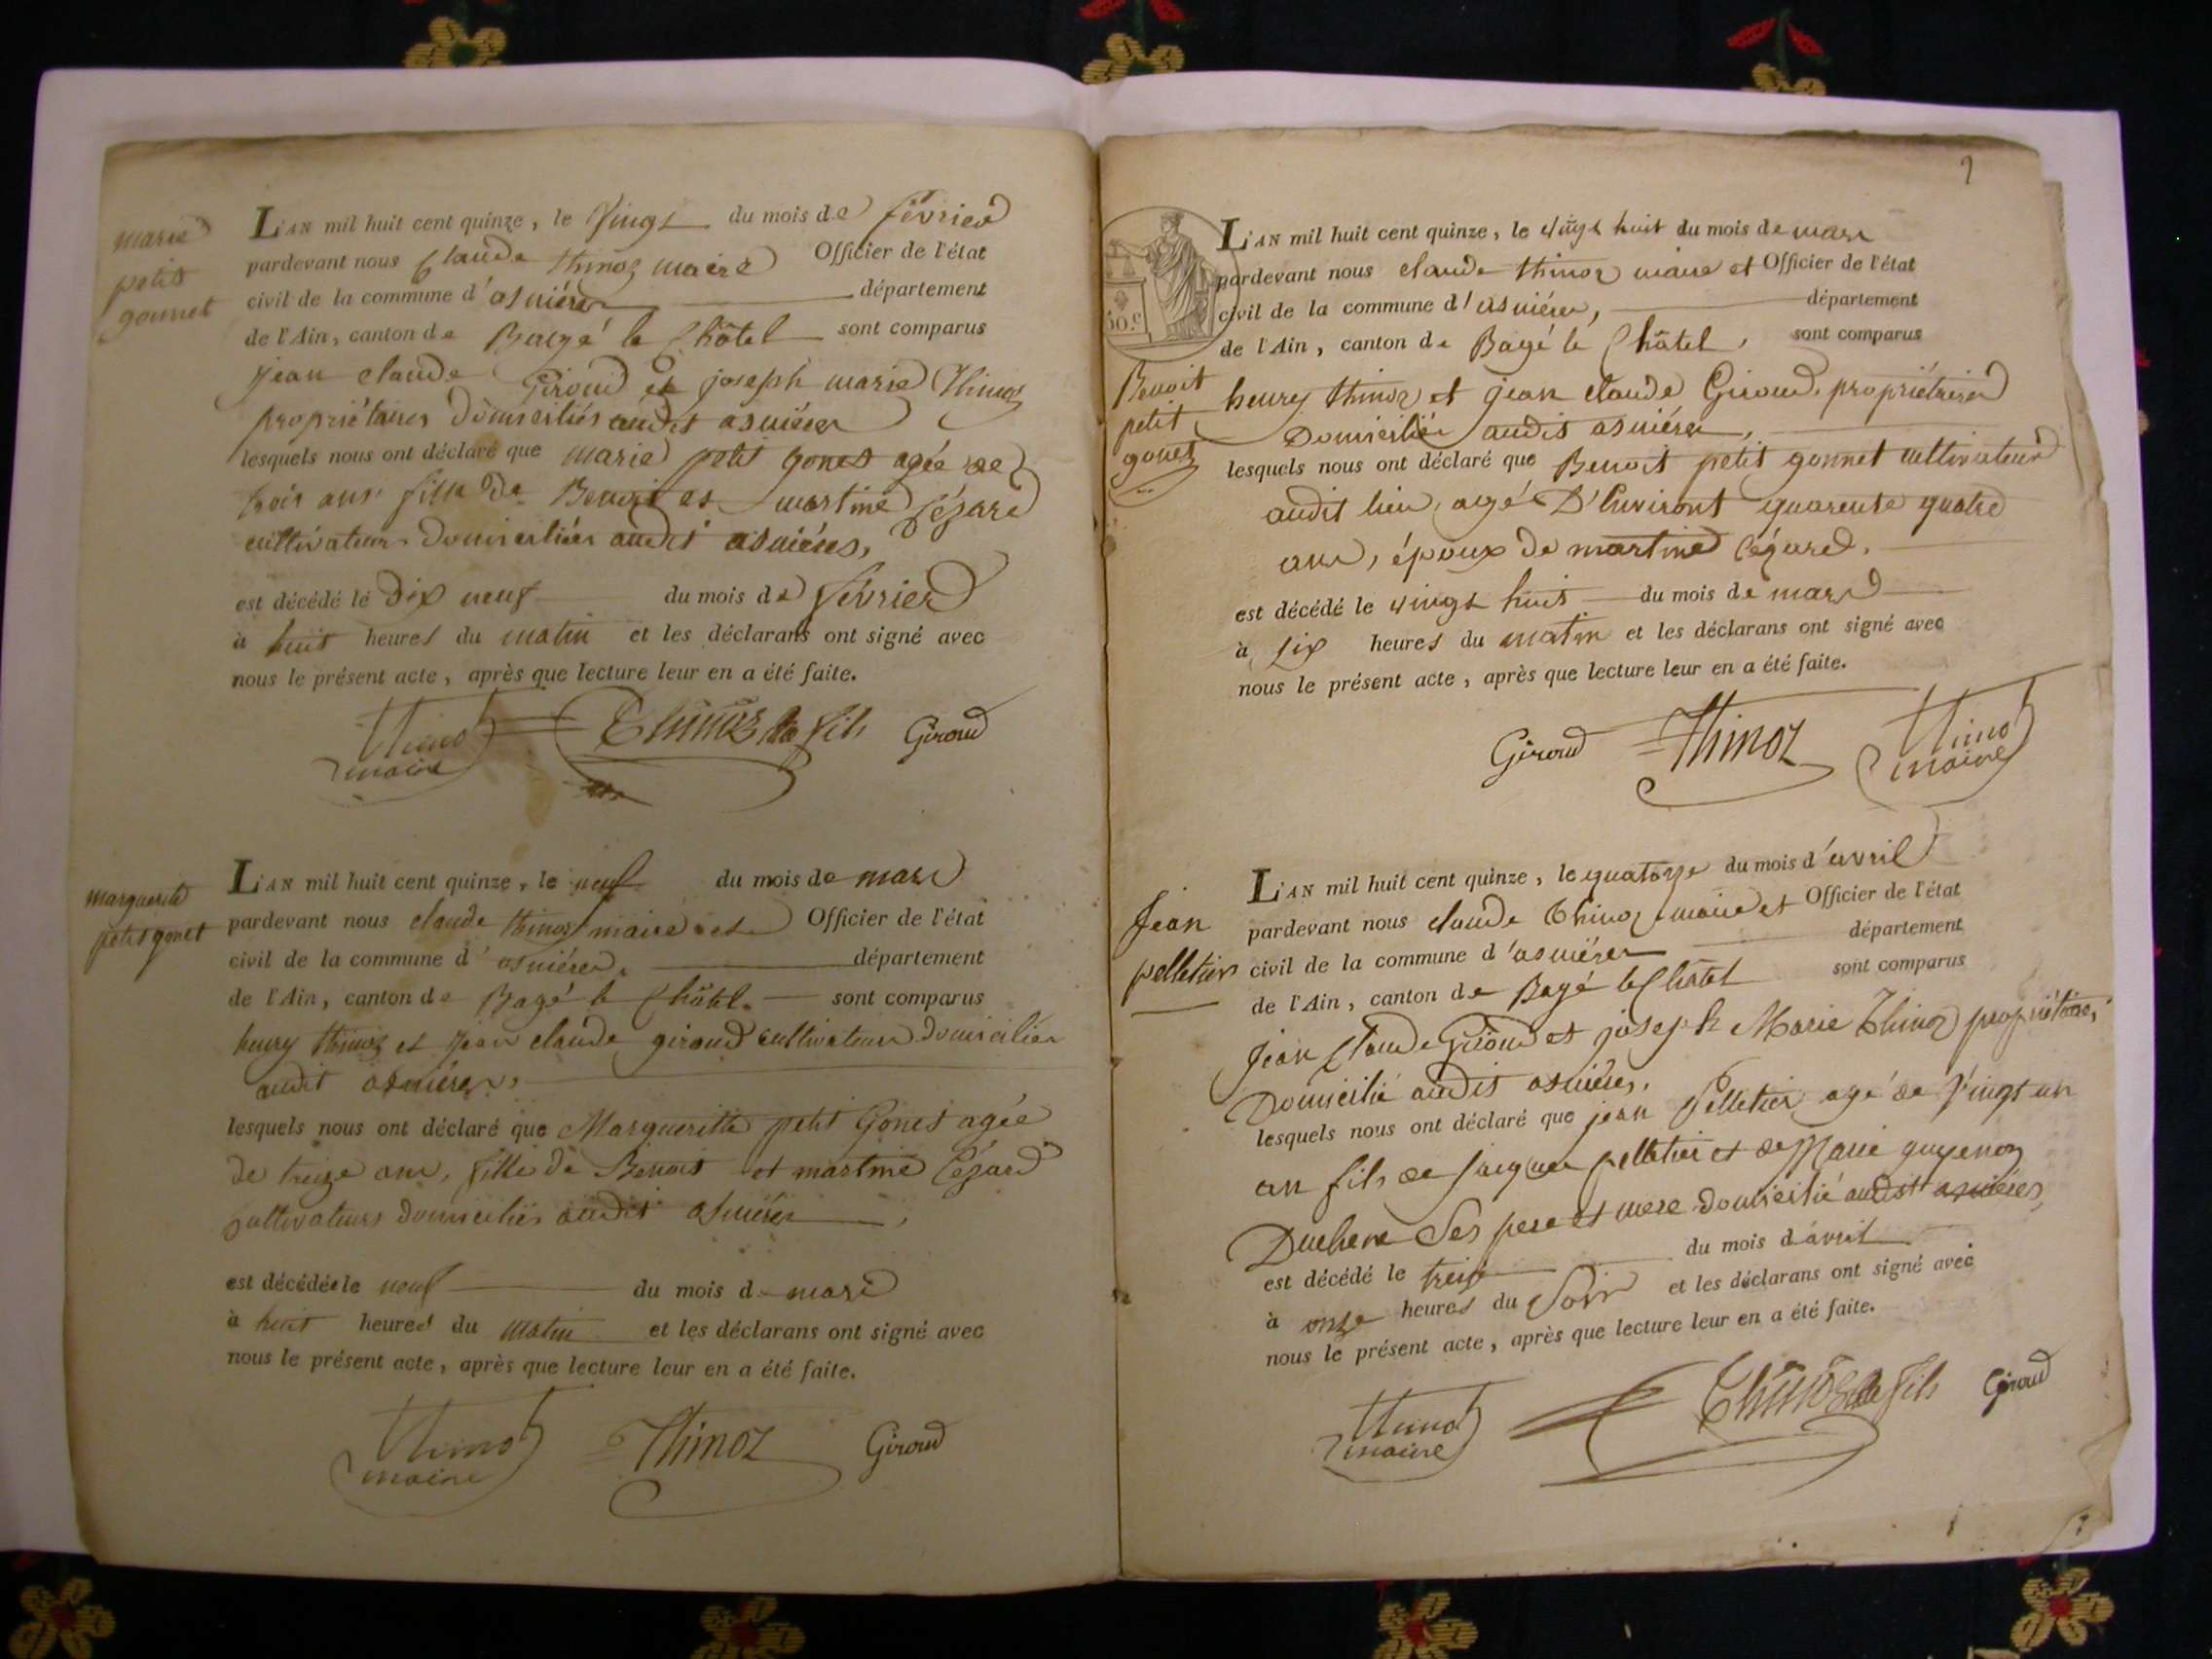 marie
petit
gonnet
L'AN mil huit cent quinze, le Vingt du mois de février
pardevant nous Claude thinoz maire Officier de l'état
civil de la commune d'asniéres département
de l'Ain, canton de Baugé le Châtel sont comparus
jean claude Giroud et joseph marie Thinoz
propriétaires domiciliés audit asniéres
lesquels nous ont déclaré que marie petit gonet agée de
trois ans fille de Benoit et martine Cézard
cultivateurs domiciliés audit asniéres,
est décédé le dix neuf du mois de février
à huit heures du matin et les déclarans ont signé avec
nous le présent acte, après que lecture leur en a été faite.
Thinoz
maire
Thinoz fils
Giroud
marguerite
petit gonet
L'AN mil huit cent quinze, le neuf du mois de mars
pardevant nous claude thinoz maire et Officier de l'état
civil de la commune d'asniéres. département
de l'Ain, canton de Bagé le Châtel. sont comparus
henry thinoz et jean claude giroud cultivateurs domiciliés
audit asniéres,
lesquels nous ont déclaré que Margueritte petit Gonet agée
de treize ans, fille de Benoit et martine Cézard
cultivateurs domiciliés audit asniéres,
est décédée le neuf du mois de mars
à huit heures du matin et les déclarans ont signé avec
nous le présent acte, après que lecture leur en a été faite.
Thinoz
maire
Thinoz
Giroud
50.c
L'AN mil huit cent quinze, le vingt huit du mois de mars
pardevant nous claude thinoz maire et Officier de l'état
civil de la commune d'asniéres, département
de l'Ain, canton de Bagé le Châtel, sont comparus
Benoit
petit
gonet
henry thinoz et jean claude Giroud, propriétaires
Domiciliés audit asniéres,
lesquels nous ont déclaré que Benoit petit gonnet cultivateur
audit lieu, agé D'Environt quarente quatre
ans, époux de martine Cézard,
est décédé le vingt huit du mois de mars
à six heures du matin et les déclarans ont signé avec
nous le présent acte, après que lecture leur en a été faite.
Giroud
Thinoz
Thinoz
maire
Jean
pelletier
L'AN mil huit cent quinze, le quatorze du mois d'avril
pardevant nous claude thinoz maire et Officier de l'état
civil de la commune d'asniéres département
de l'Ain, canton de Bagé le Châtel sont comparus
Jean Claude Giroud et joseph Marie Thinoz propriétaires,
Domicilié audit asniéres,
lesquels nous ont déclaré que jean Pelletier agé de Vingt un
an fils de jacques pelletier et de Marie guyenon
Duchene Ses pere et mere domicilié audit asniéres,
est décédé le treize du mois d'avril
à onze heures du Soir et les déclarans ont signé avec
nous le présent acte, après que lecture leur en a été faite.
Thinoz
maire
Thinoz fils
Giroud